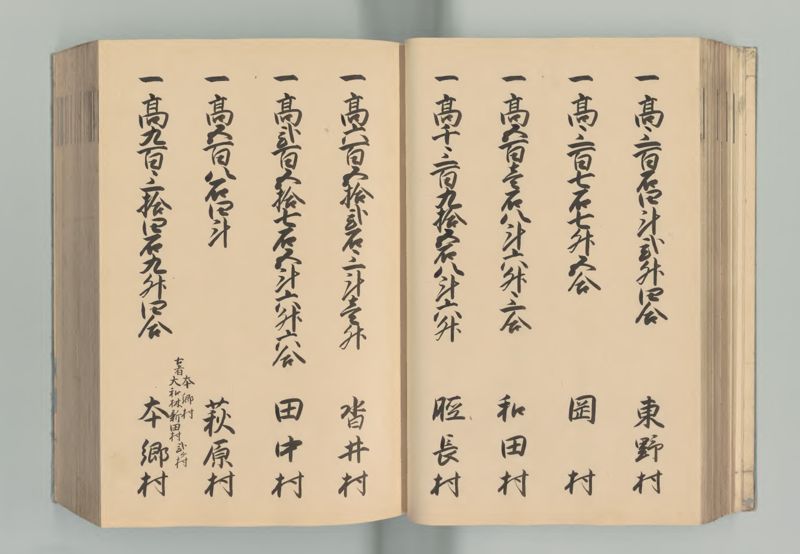 一高三百石四斗弐升四合 東野村
一高三百七石七升五合 岡村
一高五百壱石八斗六升三合 和田村
一高千三百九拾五石八斗六升 長村
一高六百五拾弐石三斗壱升 沓井村
一高弐百五拾七石五斗六升六合 田中村
一高五百八石四斗 萩原村
一高九百三拾四石九升四合 本郷村
古者 本郷村 大和村 新田村 弐ケ村